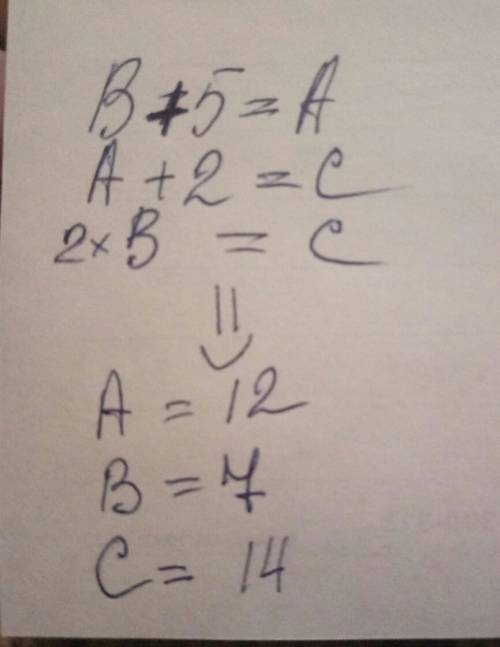 B+5=A
A+2=C
2×B=C
⇓
A=12
B=7
C=14